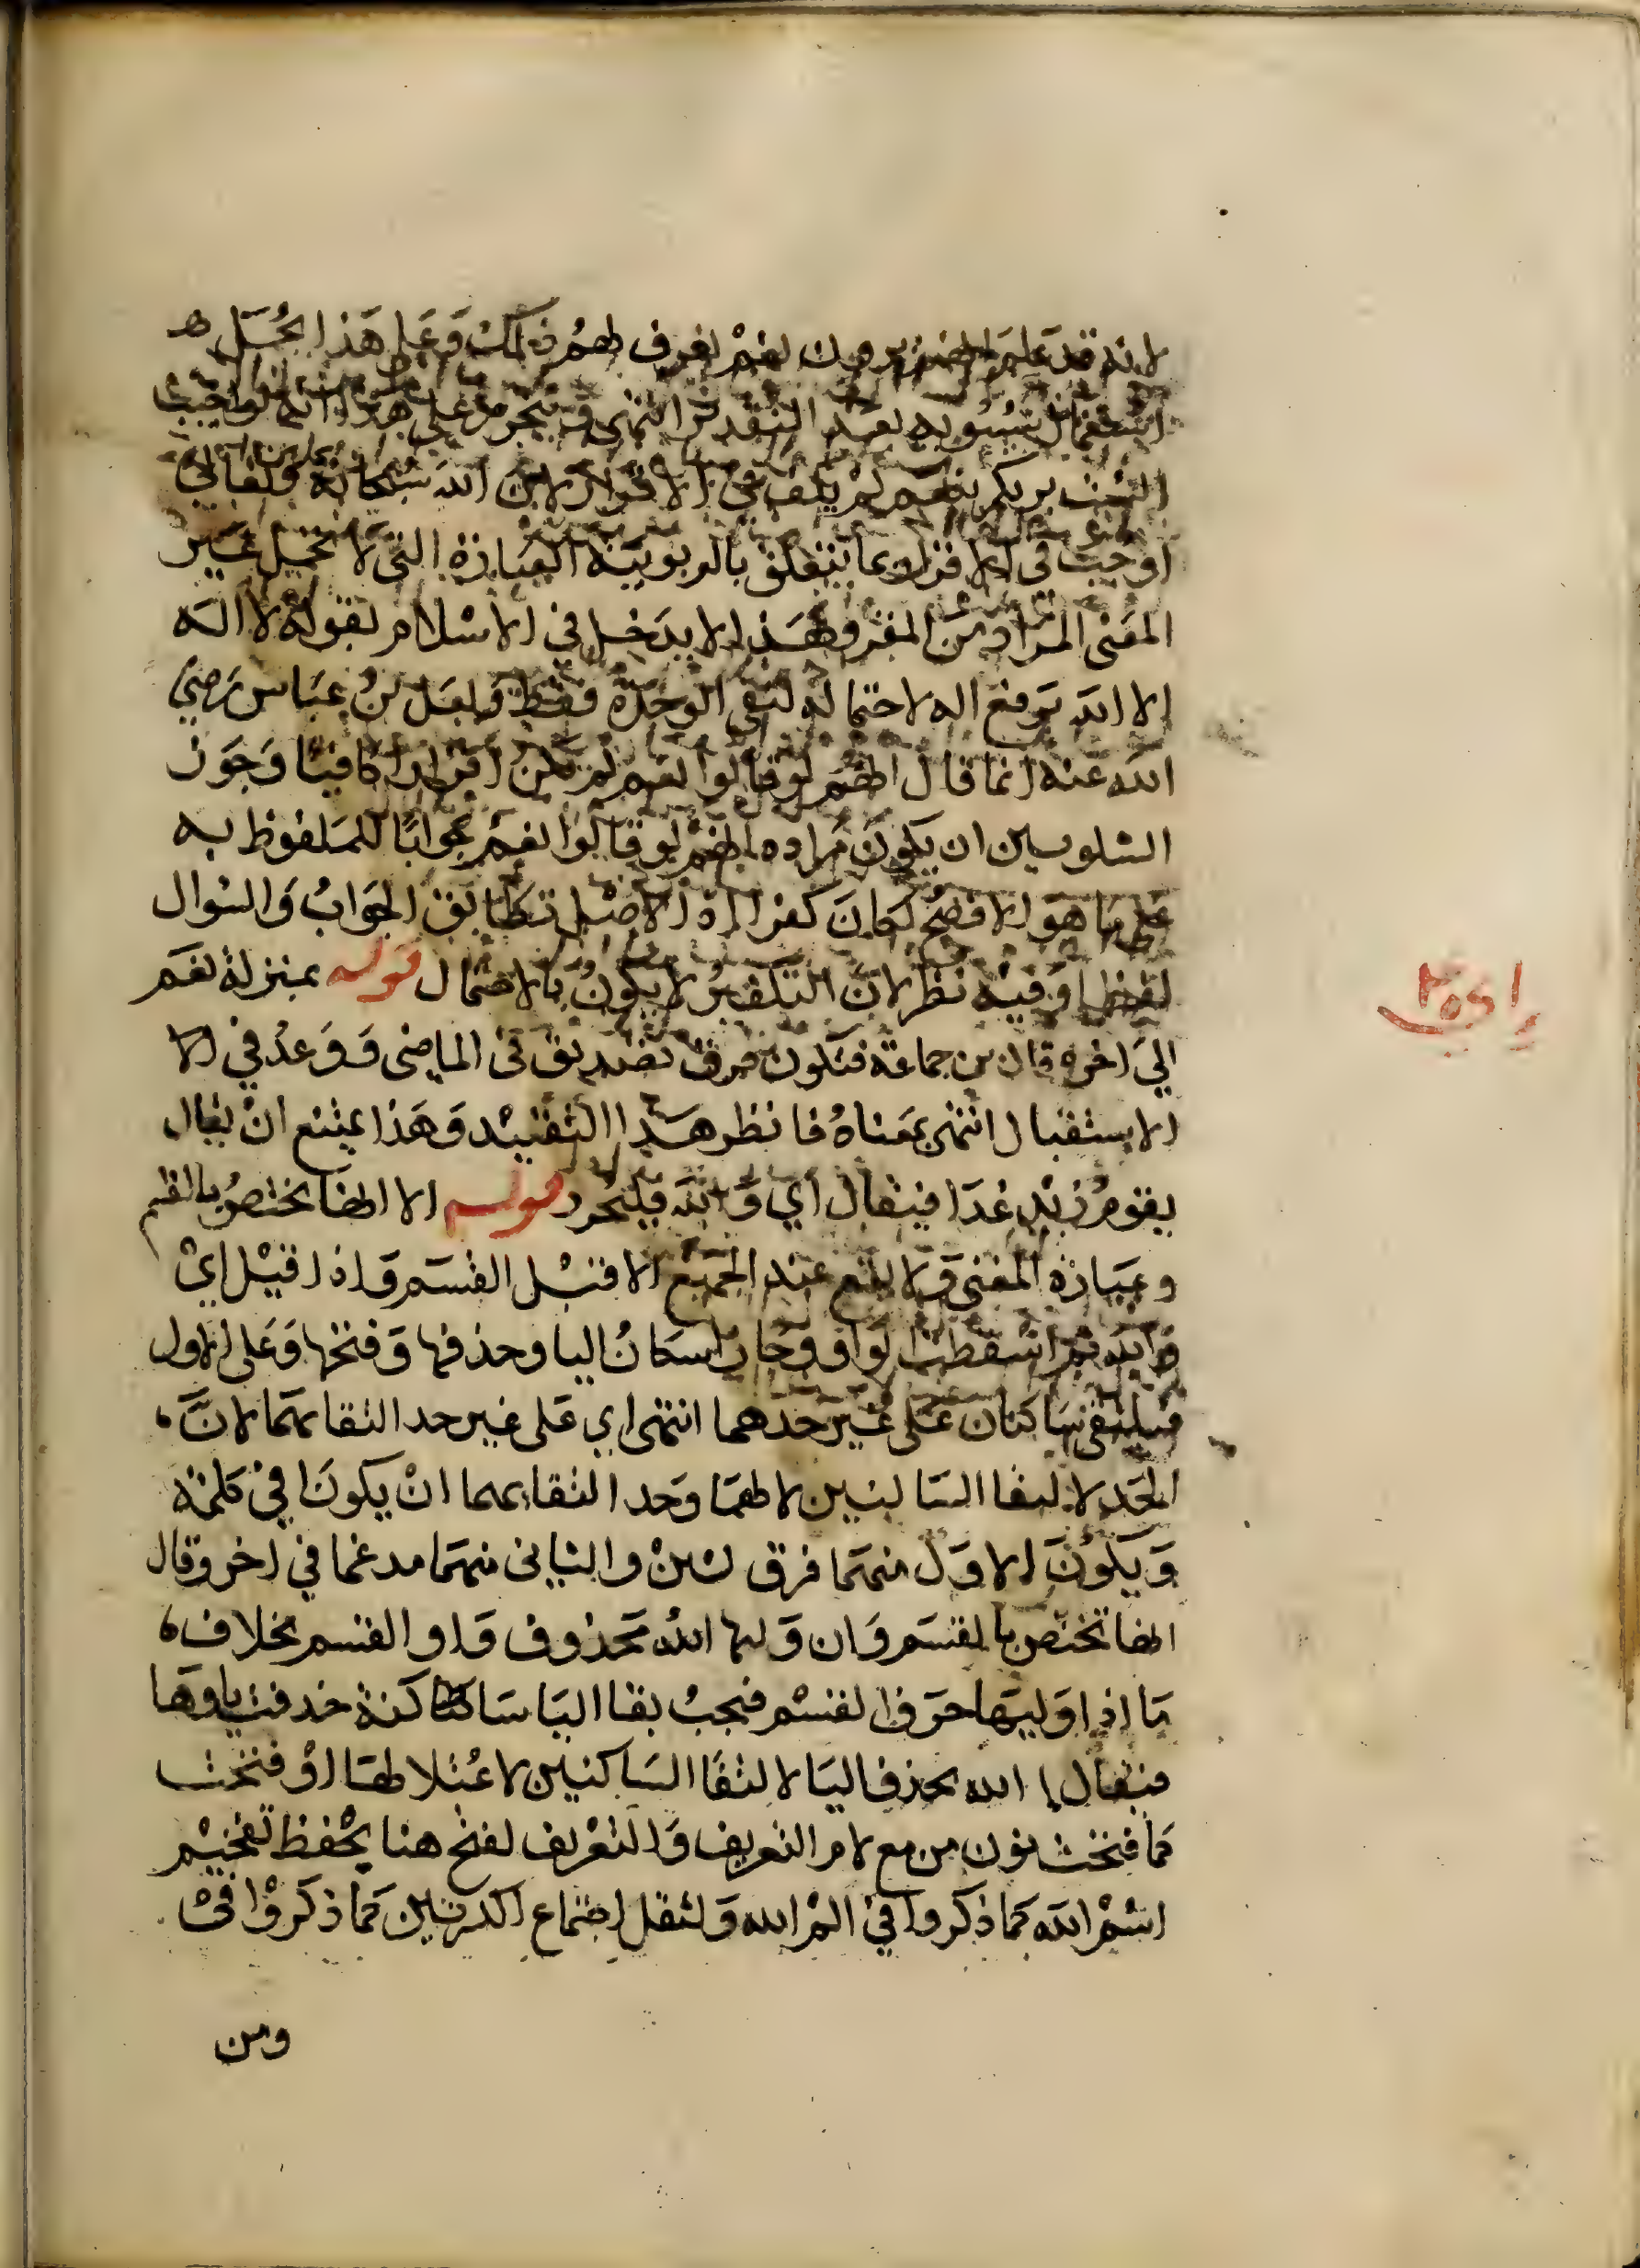 لانه قد علم انهم يريدون نعم نعرف لهم ذلك وعلى هذا يحمل
استعمال سيبويه لها بعد التقدير انتهى ويتحرر على هذا انه لو اجيب
الست بربكم بنعم لم يكف في الاقرار لان الله سبحانه وتعالى
اوجب في الاقرار بما يتعلق بالربوبية العبارة التي لا تحتمل غير
المعنى المراد من المقر ولهذا لا يدخل في الاسلام بقوله لا اله
الا الله برفع اله لاحتماله لنفي الوحدة فقط ولعل بن عباس رضي
الله عنه انما قال انهم لو قالوا نعم لم يكن اقرارا كافيا وجوز
الشلوبين ان يكون مراده انهم لو قالوا نعم جوابا للملفوظ به
على ما هو الافصح لكان كفرا اذ الاصل تطابق الجواب والسوال
لفظا وفيه نظر لان التكفير لا يكون بالاحتمال قوله بمنزلة نعم
الى اخره قال بن جماعة فتكون حرف تصديق في الماضى ووعد في الا
الاستقبال انتهى بمعناه فانظر هذا التقييد وهذا يمتنع ان يقال
يقوم زيد غدا فيقال اي والله فليحرر قوله الا انها تختص بالقسم
وعبارة المغنى ولا تقع عند الجميع الا قبل القسم واذا قيل اي
والله ثم اسقطت الواو وجاز اسكان اليا وحذفها وفتحها وعلى الاول
فيلتقى ساكنان على غير حدهما انتهى اي على غير حد التقائهما لان
الحد لا لتقا الساكنين لا لهما وحد التقائهما ان يكونا في كلمة
ويكون الاول منهما حرف لين والثانى منهما مدغما في اخر وقال
انها تختص بالقسم وان وليها الله محذوف واو القسم بخلاف
ما اذا وليها حرف القسم فيجب بقا اليا ساكنة حذفت ياوها
فيقال ا الله بحذف اليا لالتقا الساكنين لاعتلالها او فتحت
كما فتحت نون من مع لام التعريف والتعريف لفتح هنا يحفظ تفخيم
اسم الله كما ذكروا في الم الله ولثقل اجتماع الكسرتين كما ذكروا في
ومن